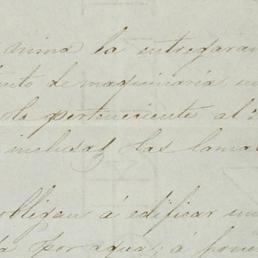 mina la entregaran
de maquinaria
perteneciente al
inclusas las
obligan á edificar un
por agua; á poner